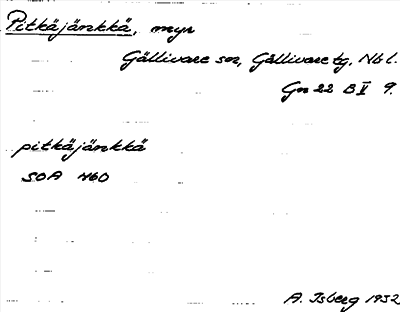 Pitkäjänkkä, myr
Gällivare sn, Gällivare tg, Nb l.
Gn 22 B V 9.
pitkäjänkkä
SOA 460
A. Isberg 1932